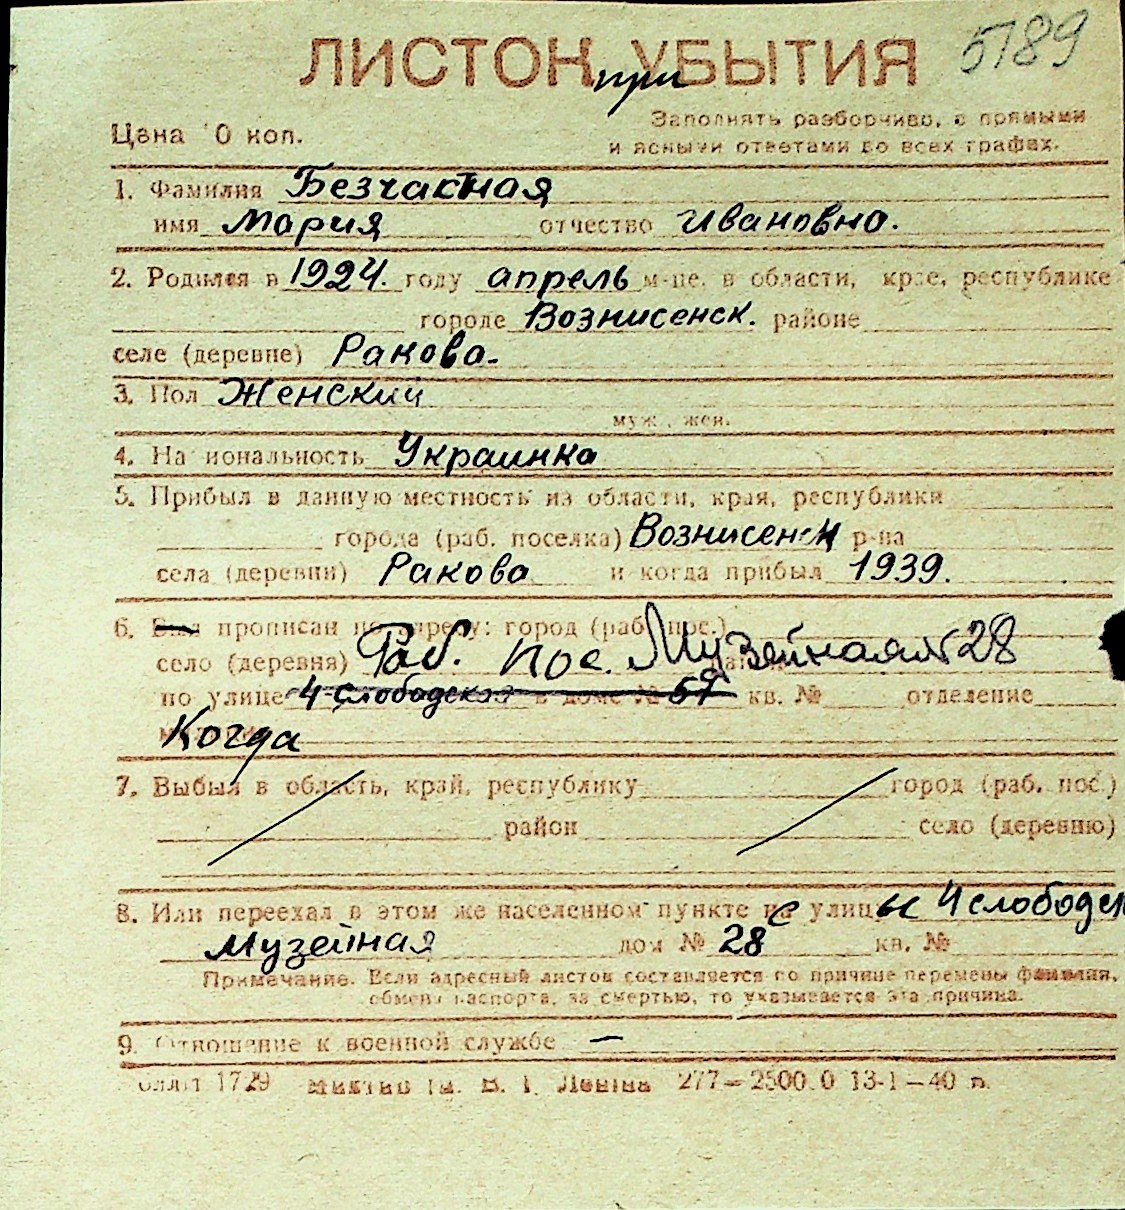 5789
ЛИСТОК УБЫТИЯ
при
Цена 10 коп.
Заполнять разборчиво, с прямыми
и ясными ответами во всех графах.
1. Фамилия Безчастная
имя Мария отчество Ивановна.
2. Родился в 1924. году апрель м-це. в области, крае, республике
городе Вознисенск. районе
селе (деревне)Ракова.
3. Пол Женский
муж., жен.
4. Национальность Украинка
5. Прибыл в данную местность из области, края, республики
города (раб. поселка) Вознисенск р-на
села (деревни) Ракова и когда прибыл 1939.
6. Был прописан по адресу: город (раб. пос.)
село (деревня) Раб. пос. Музейная № 28
по улице 4-слободская в доме № 59 кв. № отделение
Когда
7. Выбыл в область, край, республику город (раб. пос.)
район село (деревню)
8. Или переехал в этом же населенном пункте на улицу с 4 слободск
Музейная дом № 28 кв. №
Примечание. Если адресный листок составляется по причине перемены фамилии,
обмена паспорта, за смертью, то указывается эта причина.
9. Отношение к военной службе —
1729 им. В. И. Ленина 277—2500.0 13-1—40 г.